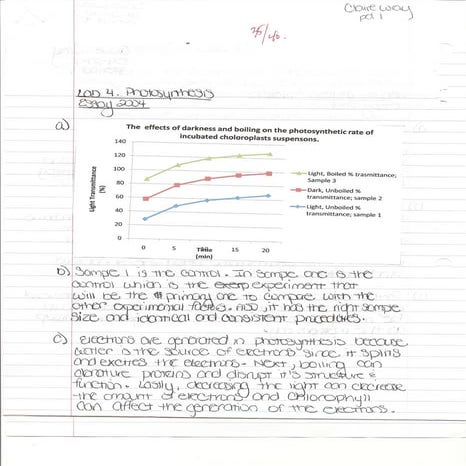 Claire Way
pd 1
Lab 4. Photosynthesis
Essay 2004
a)
The effects of darkness and boiling on the photosynthetic rate of
incubated choloroplasts suspensions.
Light Transmittance
(%)
140
120
100
80
60
40
20
0
0 5 10 15 20
Time
(min)
Light, Boiled % trasmittance;
Sample 3
Dark, Unboiled %
transmittance; sample 2
Light, Unboiled %
transmittance; sample 1
b) Sample 1 is the control. In sample one is the
control which is the experiment that
will be the primary one to compare with the
other experimental factors. Also, it has the right sample
size and identical and consistent procedures.
c) Electrons are generated in photosynthesis because
water is the source of electrons since it splits
and excites the electrons. Next, boiling can
denature proteins and disrupt it's structure &
function. Lastly, decreasing the light can decrease
the amount of electrons and chlorophyll
can affect the generation of the electrons.